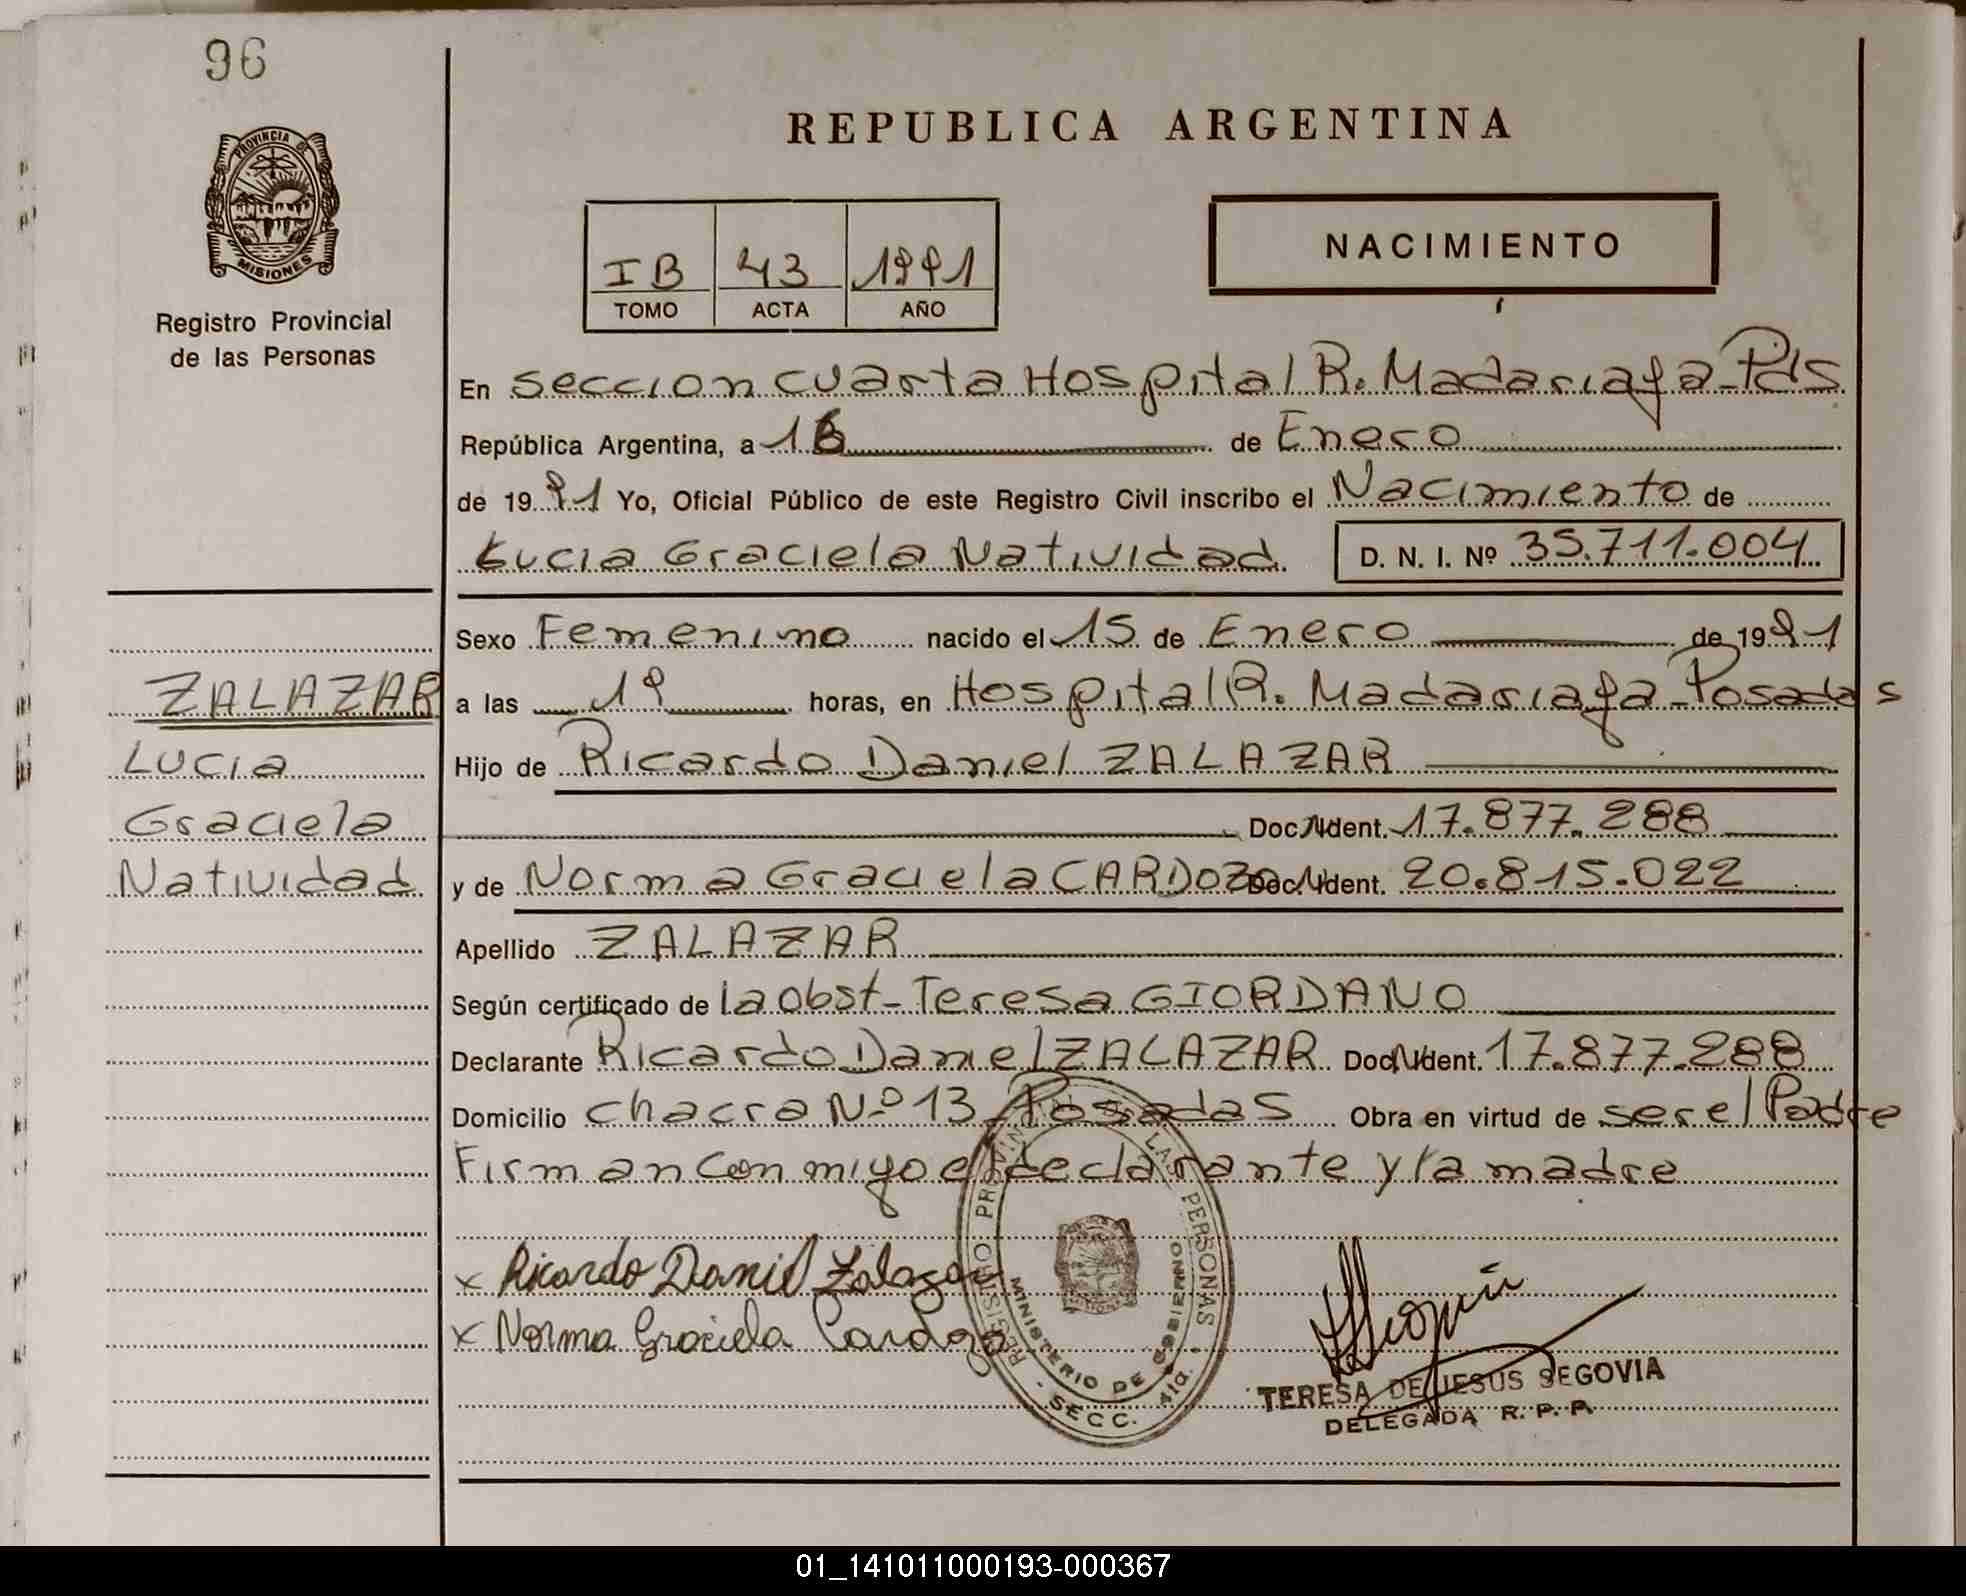 96
PROVINCIA DE
MISIONES
Registro Provincial
de las Personas
REPUBLICA ARGENTINA
IB 43 1991
TOMO ACTA AÑO
NACIMIENTO
En seccion cuarta Hospital R. Madariaga - Pds
República Argentina, a 16 de Enero
de 1991 Yo, Oficial Público de este Registro Civil inscribo el Nacimiento de
Lucia Graciela Natividad D. N. I. Nº 35.711.004
Sexo Femenino nacido el 15 de Enero de 1991
ZALAZAR
a las 19 horas, en Hospital R. Madariaga - Posadas
Lucia
Hijo de Ricardo Daniel ZALAZAR
Graciela
Doc. Ident. 17.877.288
Natividad
y de Norma Graciela CARDOZO Doc. Ident. 20.815.022
Apellido ZALAZAR
Según certificado de la obst - Teresa GIORDANO
Declarante Ricardo Daniel ZALAZAR Doc. Ident. 17.877.288
Domicilio chacra Nº 13 Posadas Obra en virtud de ser el Padre
Firman conmigo el declarante y la madre
x Ricardo Daniel Zalazar
x Norma Graciela Cardozo
REGISTRO PROVINCIAL LAS PERSONAS
MINISTERIO DE GOBIERNO
- SECC. 4ta. -
TERESA DE JESUS SEGOVIA
DELEGADA R. P. P.
01_141011000193-000367